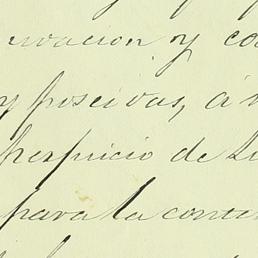 uvacion y co
y poseidas, á
perjuicio de
para la conte